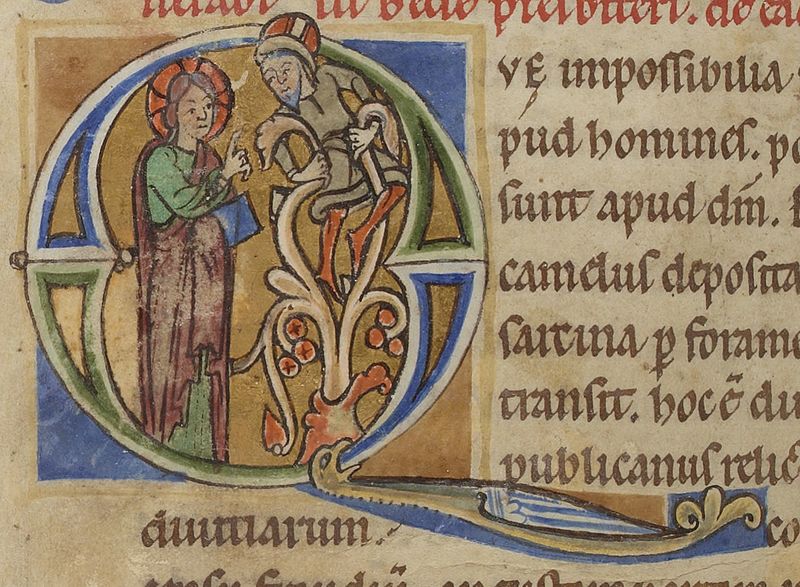 in bede presbiteri. de ea
VE impossibilia
pud homines. po
sunt apud dm̄. E
camelus deposita
sarcina ꝑ forame
transit. hoc ē du
publicanus relic
diuitiarum. co